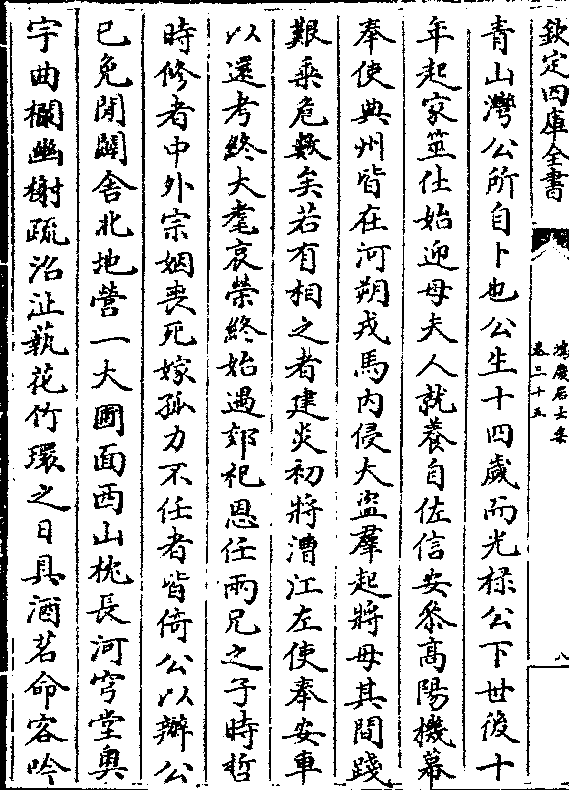 欽定四庫全書
鴻慶居士集
卷三十五
八
青山灣公所自卜也公生十四歲而光祿公下世後十
年起家筮仕始迎母夫人就養自佐信安叅高陽機幕
奉使典州皆在河朔戎馬内侵大盜羣起將母其間踐
艱乗危數矣若有相之者建炎初將漕江左使奉安車
以還考終大耄哀榮終始遇郊祀恩任兩兄之子時哲
時修者中外宗姻喪死嫁孤力不任者皆倚公以辦公
已免閒闢舍北地營一大圃面西山枕長河穹堂奥
宇曲欄幽榭疏沼沚蓺花竹環之日具酒茗命客吟